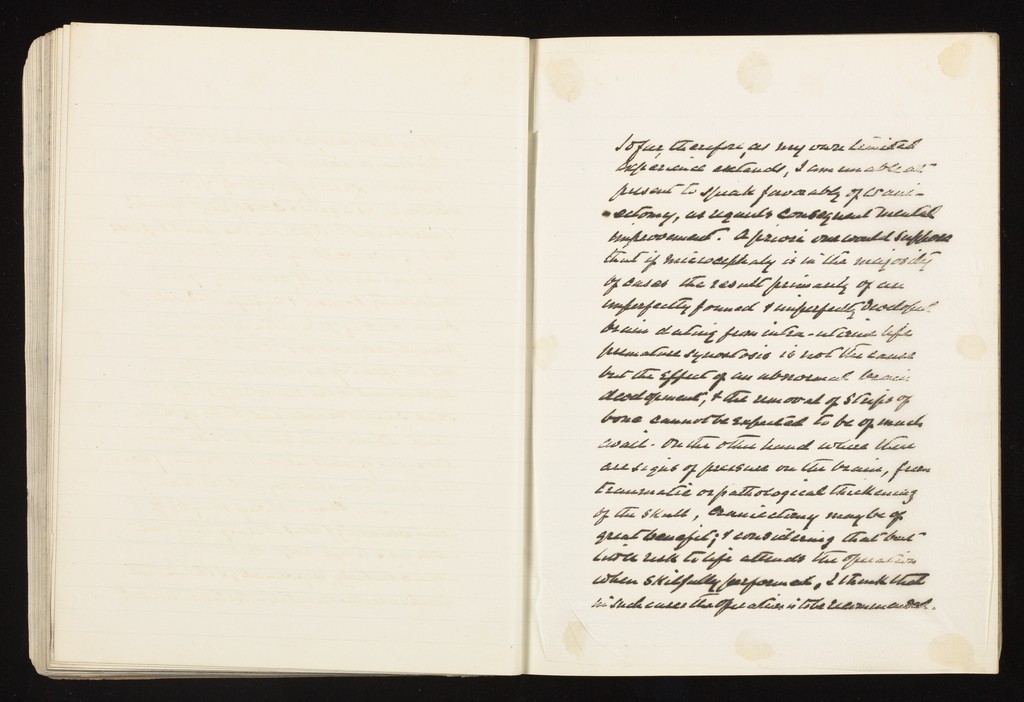 So far, therefore, as my own limited
experience extends, I am unable at
present to speak favorably of crani-
ectomy, as regards consequent mental
improvement. A priori one would suppose
that if microcephaly is in the majority
of cases the result primarily of an
imperfectly formed & imperfectly developed
brain dating from intra-uterine life
premature synostosis is not the cause
but the effect of an abnormal brain
development, & the removal of strips of
bone cannot be expected to be of much
avail. On the other hand where there
are signs of pressure on the brain, from
traumatic or pathological thickening
of the skull, craniectomy may be of
great benefit; & considering that but
little risk to life attends the operation
when skilfully performed, I think that
in such cases the operation is to be recommended.